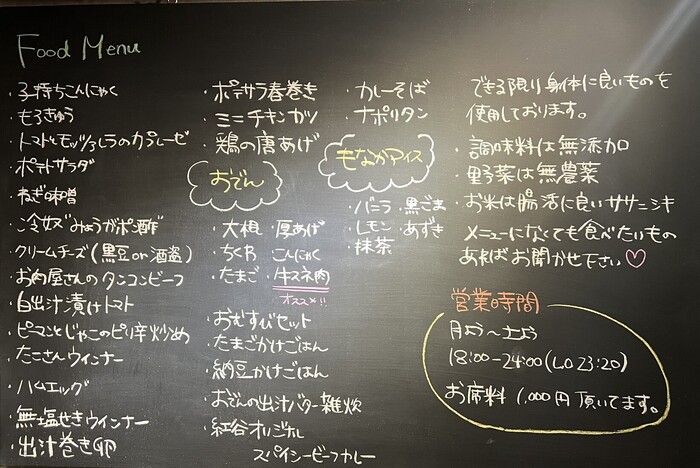 Food Menu
・子持ちこんにゃく
・もろきゅう
・トマトとモッツァレラのカプレーゼ
・ポテトサラダ
・ねぎ味噌
・冷奴"みょうがポン酢"
・クリームチーズ(黒豆or酒盗)
・お肉屋さんのタンコンビーフ
・白出汁漬けトマト
・ピーマンとじゃこのピリ辛炒め
・たこさんウインナー
・ハムエッグ
・無塩せきウインナー
・出汁巻き卵
・ポテサラ春巻き
・ミニチキンカツ
・鶏の唐あげ
おでん
・大根・厚あげ
・ちくわ・こんにゃく
・たまご・牛スネ肉
オススメ!!
・おむすびセット
・たまごかけごはん
・納豆かけごはん
・おでんの出汁バター雑炊
・紅谷オリジナル
スパイシービーフカレー
・カレーそば
・ナポリタン
もなかアイス
・バニラ・黒ごま
・レモン・あずき
・抹茶
できる限り身体に良いものを
使用しております。
・調味料は無添加
・野菜は無農薬
・お米は腸活に良いササニシキ
メニューになくても食べたいもの
あればお聞かせ下さい♡
営業時間
月よう〜土よう
18:00-24:00(L.O 23:20)
お席料 1,000円頂いてます。